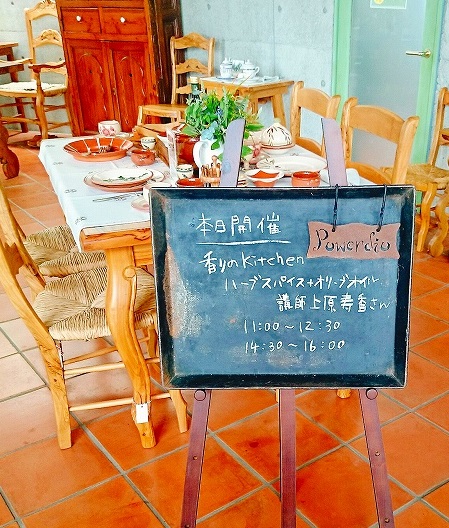 本日開催
Powerdio
香りのKitchen
ハーブスパイス+オリーブオイル
講師上原寿香さん
11:00～12:30
14:30～16:00